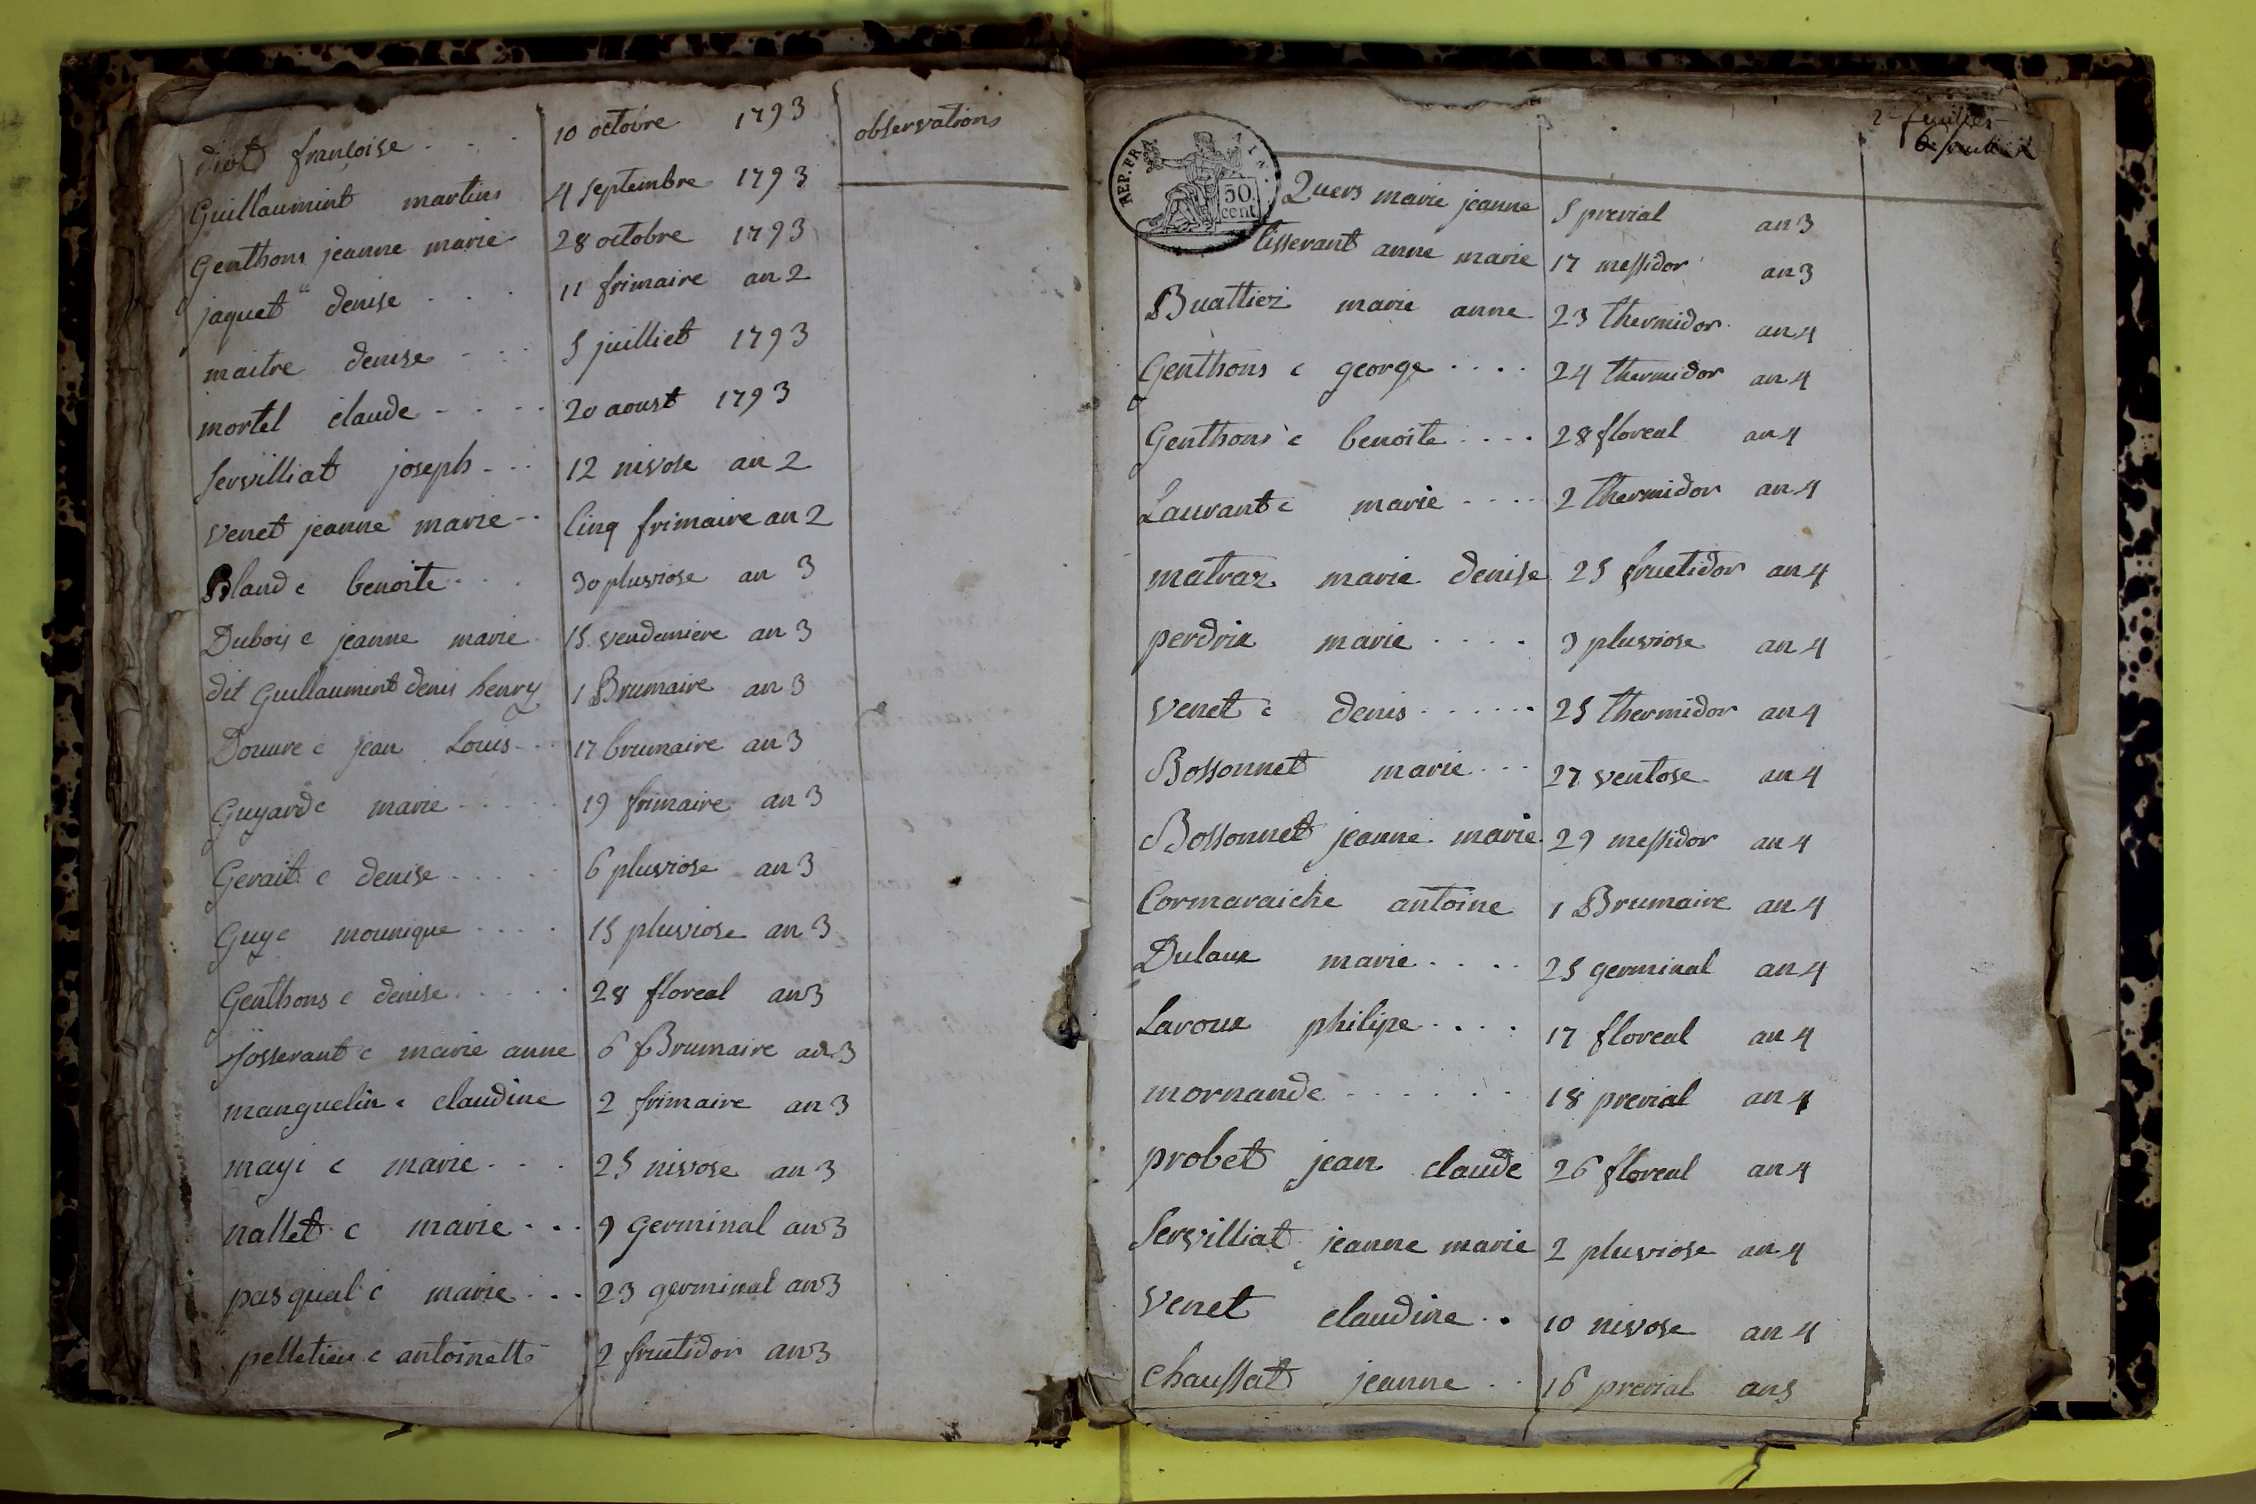 diot françoise 10 octoire 1793 observations
Guillaumint martins 4 septembre 1793
Genthons jeanne marie 28 octobre 1793
jaquet denise 11 frimaire an 2
maitre denise 5 juilliet 1793
mortel claude 20 aoust 1793
Servilliat joseph 12 nivose an 2
venet jeanne marie Cinq frimaire an 2
Bland c benoite 30 pluviose an 3
Dubois c jeanne marie 15 vendemiere an 3
dit Guillaumint denis henry 1 Brumaire an 3
Douvre c jean Louis 17 brumaire an 3
Guyard c marie 19 frimaire an 3
Gerait c denise 6 pluviose an 3
Guy c mounique 15 pluviose an 3
Genthons c denise 28 floreal an 3
Josserant c marie anne 6 Brumaire an 3
manguelin c claudine 2 frimaire an 3
mayi c marie 25 nivose an 3
nallet c marie 9 germinal an 3
pasqual c marie 23 germinal an 3
pelletier c antoinette 2 fructidor an 3
2e feuillet
REP. FRA
50 cent
Quers marie jeanne 5 prerial an 3
tisserant anne marie 17 messidor an 3
Buattiez marie anne 23 thermidor an 4
Genthons c george 24 thermidor an 4
Genthons c benoite 28 floreal an 4
Laurant c marie 2 thermidor an 4
matraz marie denise 25 fructidor an 4
perdrix marie 9 pluviose an 4
venet c denis 25 thermidor an 4
Bossonnet marie 27 ventose an 4
Bossonnet jeanne marie 29 messidor an 4
Cormaraiche antoine 1 Brumaire an 4
Dulaux marie 25 germinal an 4
Laroux philipe 17 floreal an 4
mornand c 18 prerial an 4
probet jean claude 26 floreal an 4
Servilliat jeanne marie 2 pluviose an 4
Venet claudine 10 nivose an 4
Chaussat jeanne 16 prerial an 5